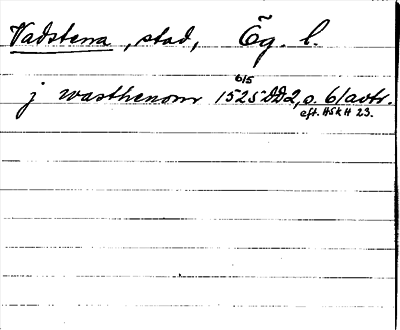 Vadstena, stad, Ög. l.
6/5
j wasthenom 1525 DD2, s. 61 avtr.
eft. HSkH 23.